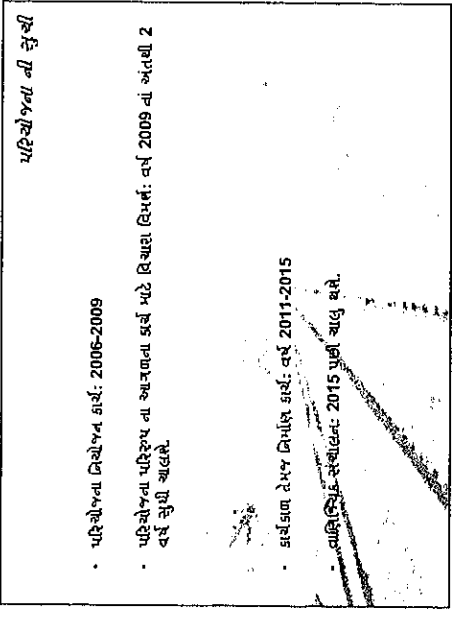 પરિયોજના ની સુચી
- પરિયોજના નિયોજન કાર્ય: 2006-2009
- પરિયોજના પરિરુપ ના આગળના કાર્ય માટે વિચારા વિમર્શ: વર્ષ 2009 નાં અંતથી 2
વર્ષ સુધી ચાલશે.
- કાર્યકાળ તેમજ નિર્માણ કાર્ય: વર્ષ 2011-2015
- વાણિજ્યિક સંચાલન: 2015 પછી ચાલુ થશે.